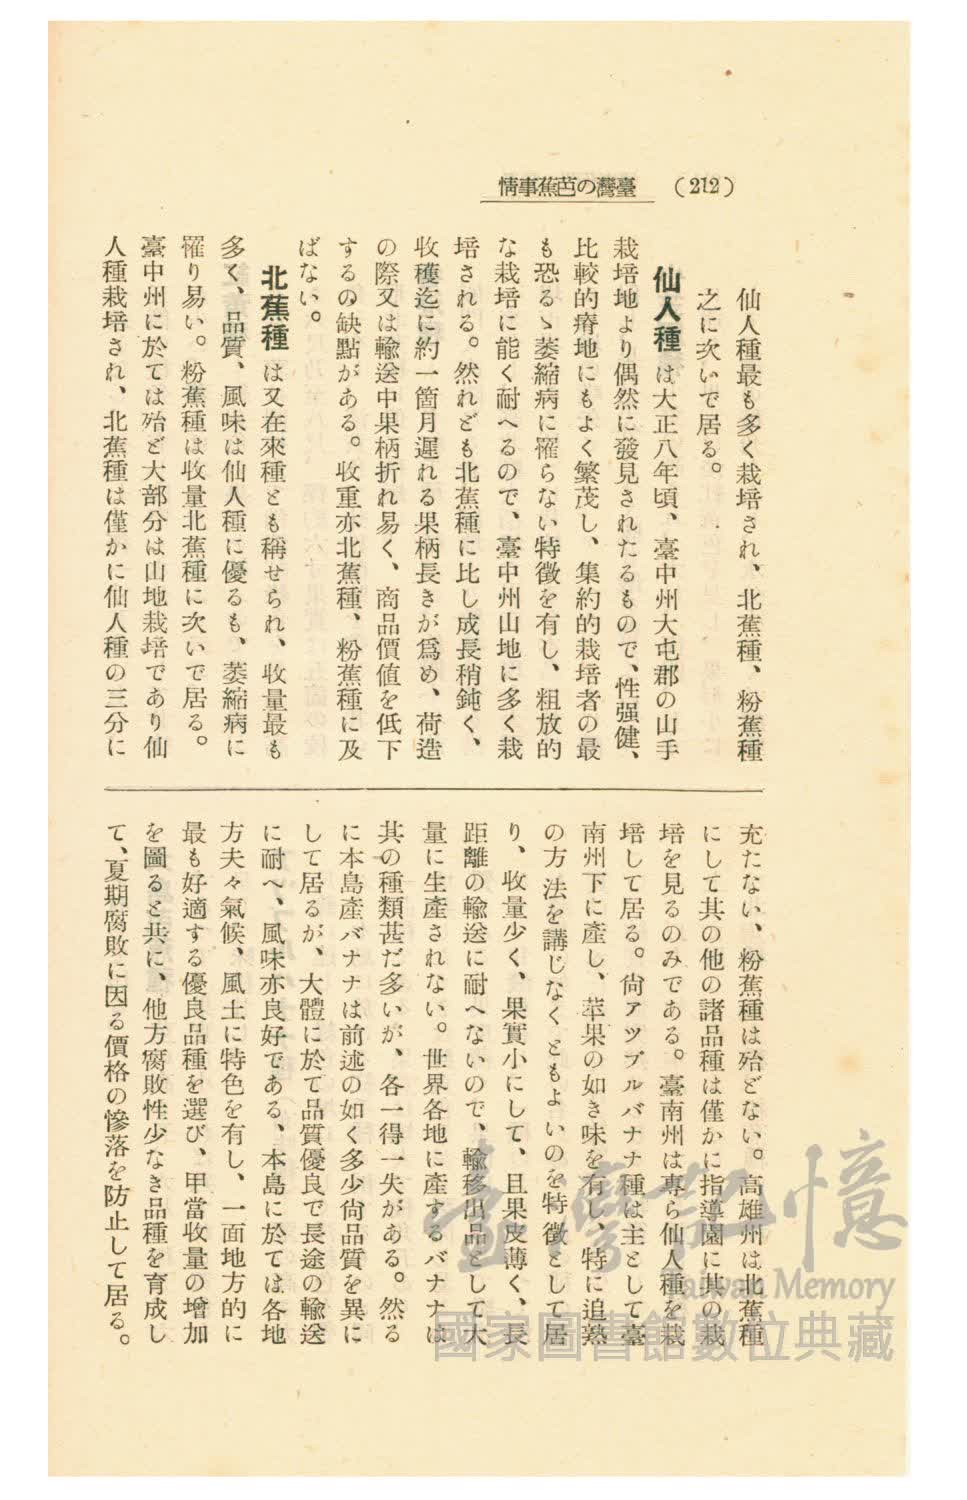 臺灣の芭蕉事情 (212)
仙人種最も多く栽培され、北蕉種、粉蕉種
之に次いで居る。
仙人種 は大正八年頃、臺中州大屯郡の山手
栽培地より偶然に發見されたるもので、性强健、
比較的瘠地にもよく繁茂し、集約的栽培者の最
も恐るゝ萎縮病に罹らない特徵を有し、粗放的
な栽培に能く耐へるので、臺中州山地に多く栽
培される。然れども北蕉種に比し成長稍鈍く、
收穫迄に約一箇月遲れる果柄長きが爲め、荷造
の際又は輸送中果柄折れ易く、商品價値を低下
するの缺點がある。收重亦北蕉種、粉蕉種に及
ばない。
北蕉種 は又在來種とも稱せられ、收量最も
多く、品質、風味は仙人種に優るも、萎縮病に
罹り易い。粉蕉種は收量北蕉種に次いで居る。
臺中州に於ては殆ど大部分は山地栽培であり仙
人種栽培され、北蕉種は僅かに仙人種の三分に
充たない、粉蕉種は殆どない。高雄州は北蕉種
にして其の他の諸品種は僅かに指導園に其の栽
培を見るのみである。臺南州は專ら仙人種を栽
培して居る。尙アツブルバナナ種は主として臺
南州下に產し、苹果の如き味を有し、特に追熟
の方法を講じなくともよいのを特徵として居
り、收量少く、果實小にして、且果皮薄く、長
距離の輸送に耐へないので、輸移出品として大
量に生產されない。世界各地に產するバナナは
其の種類甚だ多いが、各一得一失がある。然る
に本島產バナナは前述の如く多少尙品質を異に
して居るが、大體に於て品質優良で長途の輸送
に耐へ、風味亦良好である、本島に於ては各地
方夫々氣候、風土に特色を有し、一面地方的に
最も好適する優良品種を選び、甲當收量の增加
を圖ると共に、他方腐敗性少なき品種を育成し
て、夏期腐敗に因る價格の慘落を防止して居る。
臺灣記憶
Taiwan Memory
國家圖書館數位典藏